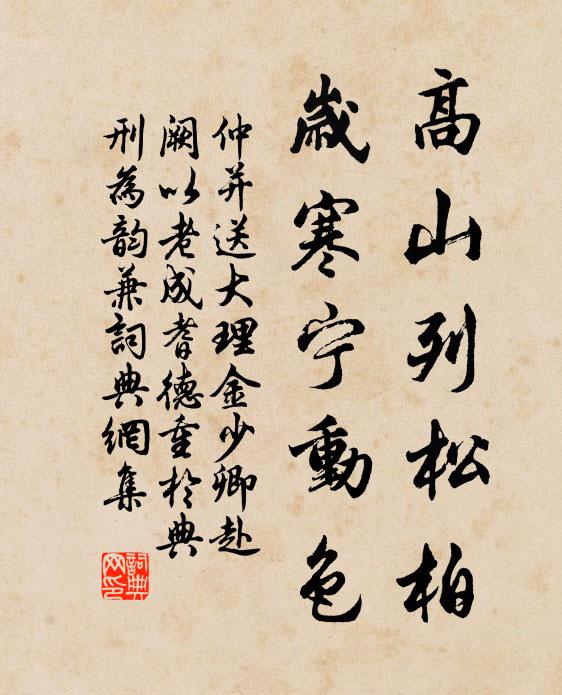 高山列松柏
歲寒宁動色
仲并送大理金少卿赴
闕以老成耆德重於典
刑為韵兼詞典網集
詞典
网印